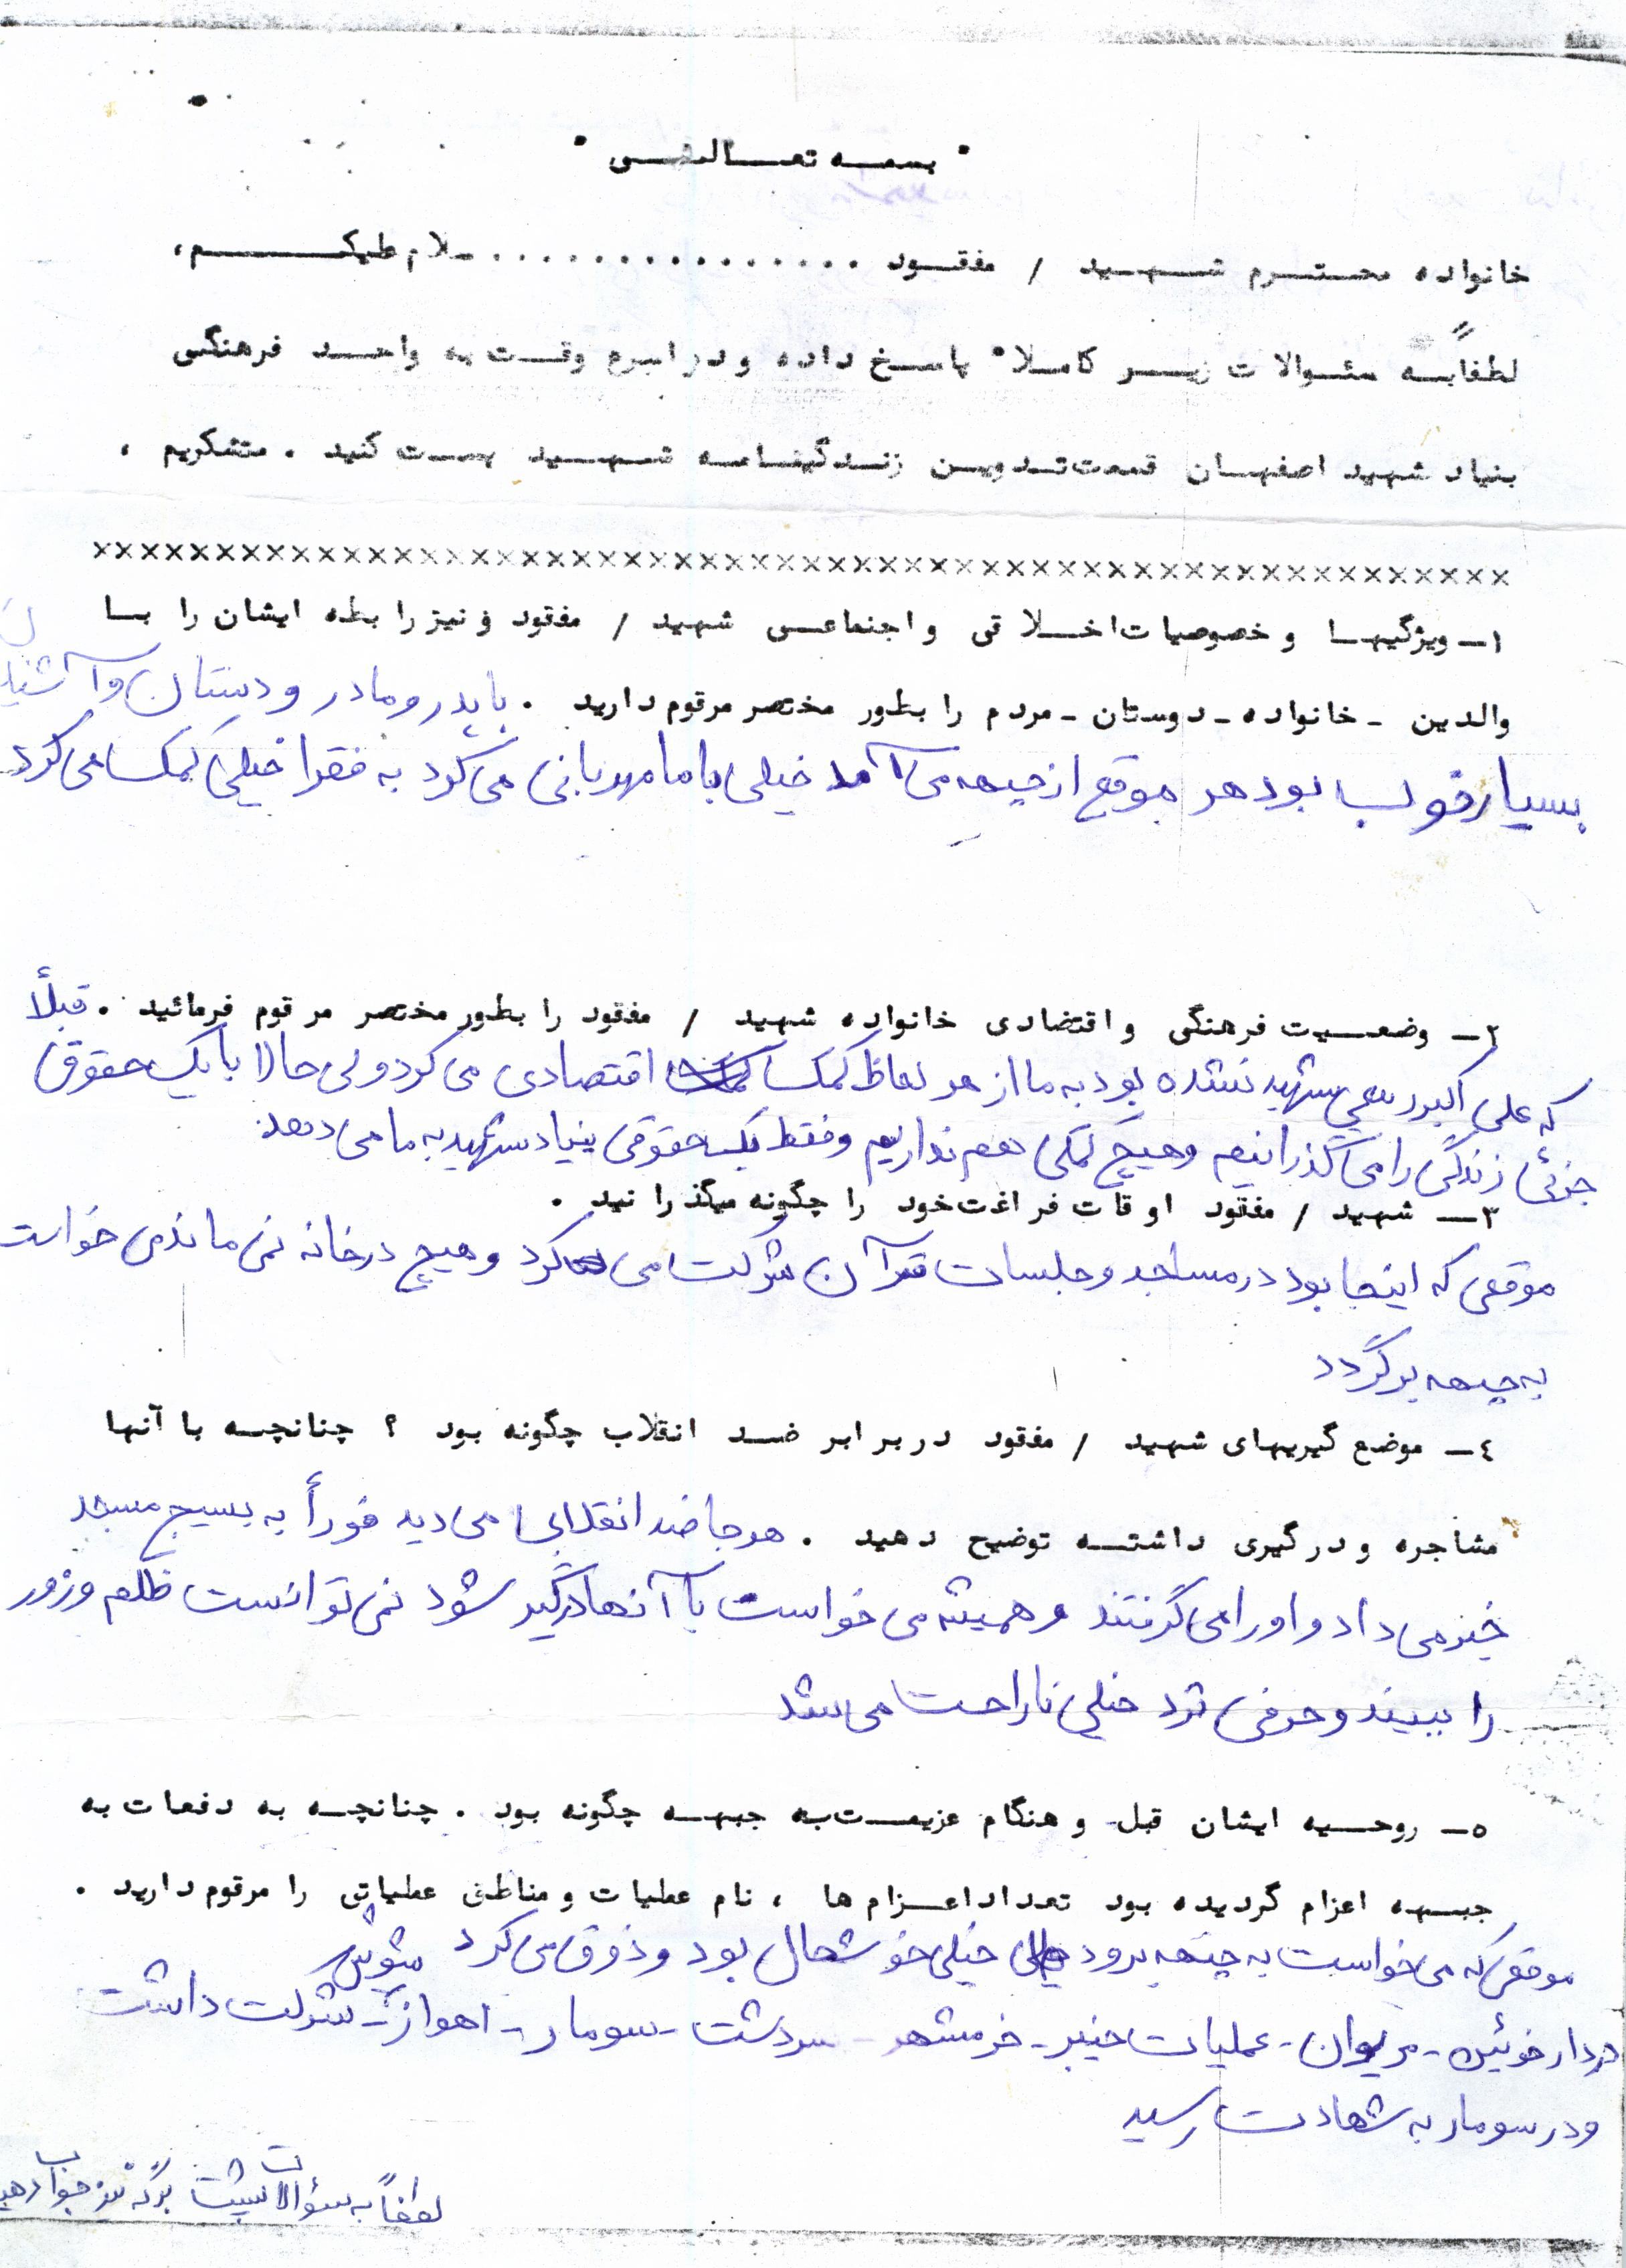 " بسمه تعالی "
خانواده محترم شهید / مفقود ................ سلام علیکم،
لطفاً به سئوالات زیر کاملا" پاسخ داده و در اسرع وقت به واحد فرهنگی
بنیاد شهید اصفهان قسمت تدوین زندگینامه شهید پست کنید . متشکریم ،
××××××××××××××××××××××××××××××××××××××××××××××××××××××××
۱- ویژگیها و خصوصیات اخلاقی و اجتماعی شهید / مفقود و نیز رابطه ایشان را با
والدین - خانواده - دوستان - مردم را بطور مختصر مرقوم دارید . با پدر و مادر و دوستان و آشنایان
بسیار خوب بود هر موقع از جبهه می آمد خیلی با ما مهربانی می کرد به فقرا خیلی کمک می کرد
۲- وضعیت فرهنگی و اقتضادی خانواده شهید / مفقود را بطور مختصر مرقوم فرمائید . قبلاً
که علی اکبر شهید نشده بود به ما از هر لحاظ کمک اقتصادی می کرد ولی حالا با یک حقوق
جزئی زندگی را می گذرانیم و هیچ کمکی هم نداریم و فقط یک حقوقی بنیاد شهید به ما می دهد
۳- شهید / مفقود اوقات فراغت خود را چگونه میگذرانید .
موقعی که اینجا بود در مساجد و جلسات قرآن شرکت می کرد و هیچ در خانه نمی ماند می خواست
به جبهه برگردد
٤- موضع گیریهای شهید / مفقود در برابر ضد انقلاب چگونه بود ؟ چنانچه با آنها
مشاجره و درگیری داشته توضیح دهید . هر جا ضد انقلابی می دید فوراً به بسیج مسجد
خبر می داد و او را می گرفتند و همیشه می خواست با آنها درگیر شود نمی توانست ظلم و زور
را ببیند و حرفی نزد خیلی ناراحت می شد
۵- روحیه ایشان قبل و هنگام عزیمت به جبهه چگونه بود . چنانچه به دفعات به
جبهه اعزام گردیده بود تعداد اعزام ها ، نام عملیات و مناطق عملیاتی را مرقوم دارید .
موقعی که می خواست به جبهه برود خیلی خوشحال بود و ذوق می کرد شوش
در دارخوئین - مریوان - عملیات خیبر - خرمشهر - سردشت - سومار - اهواز - شرکت داشت
و در سومار به شهادت رسید
لطفاً به سؤالات پشت برگه نیز جواب دهید